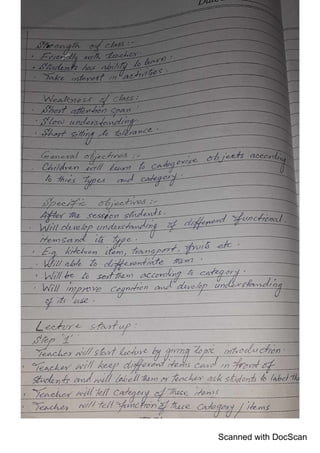 Strength of class:-
· Friendly with teacher.
· Students has ability to learn:
· Take interest in activities.
Weakness of class:
· Short attention span.
· Slow understanding.
· Short sitting to tolerance.
General objectives :-
Children will learn to categorize objects according
to this types and category.
Specific objectives :-
After the session students.
· Will develop understanding of different functional
items and its type.
· E.g kitchen item, transport, fruits etc.
· Will able to differentiate them.
· Will be to sort them according to category.
· Will improve cognition and develop understanding
of its use.
Lecture startup:
Step '1'
Teacher will start lecture by giving topic introduction.
· Teacher will keep different items card in front of
students and will label them or teacher ask students to label the
· Teacher will tell category of these items
· Teacher will tell function of these category / items
Scanned with DocScan